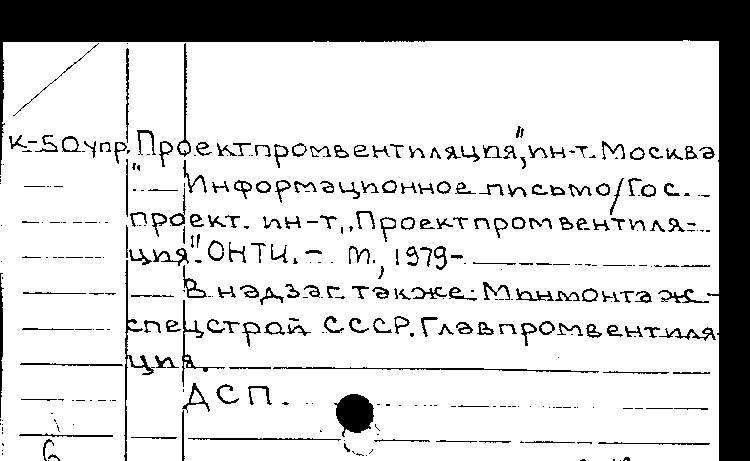 К-50упр. Проектпромвентиляция", ин-т. Москва
" Информационное письмо/Гос.
проект. ин-т „Проектпромвентиля-
ция". ОНТИ. – М., 1979-
В надзаг. также: Минмонтаж-
спецстрой СССР. Главпромвентиля
ция.
ДСП.
6